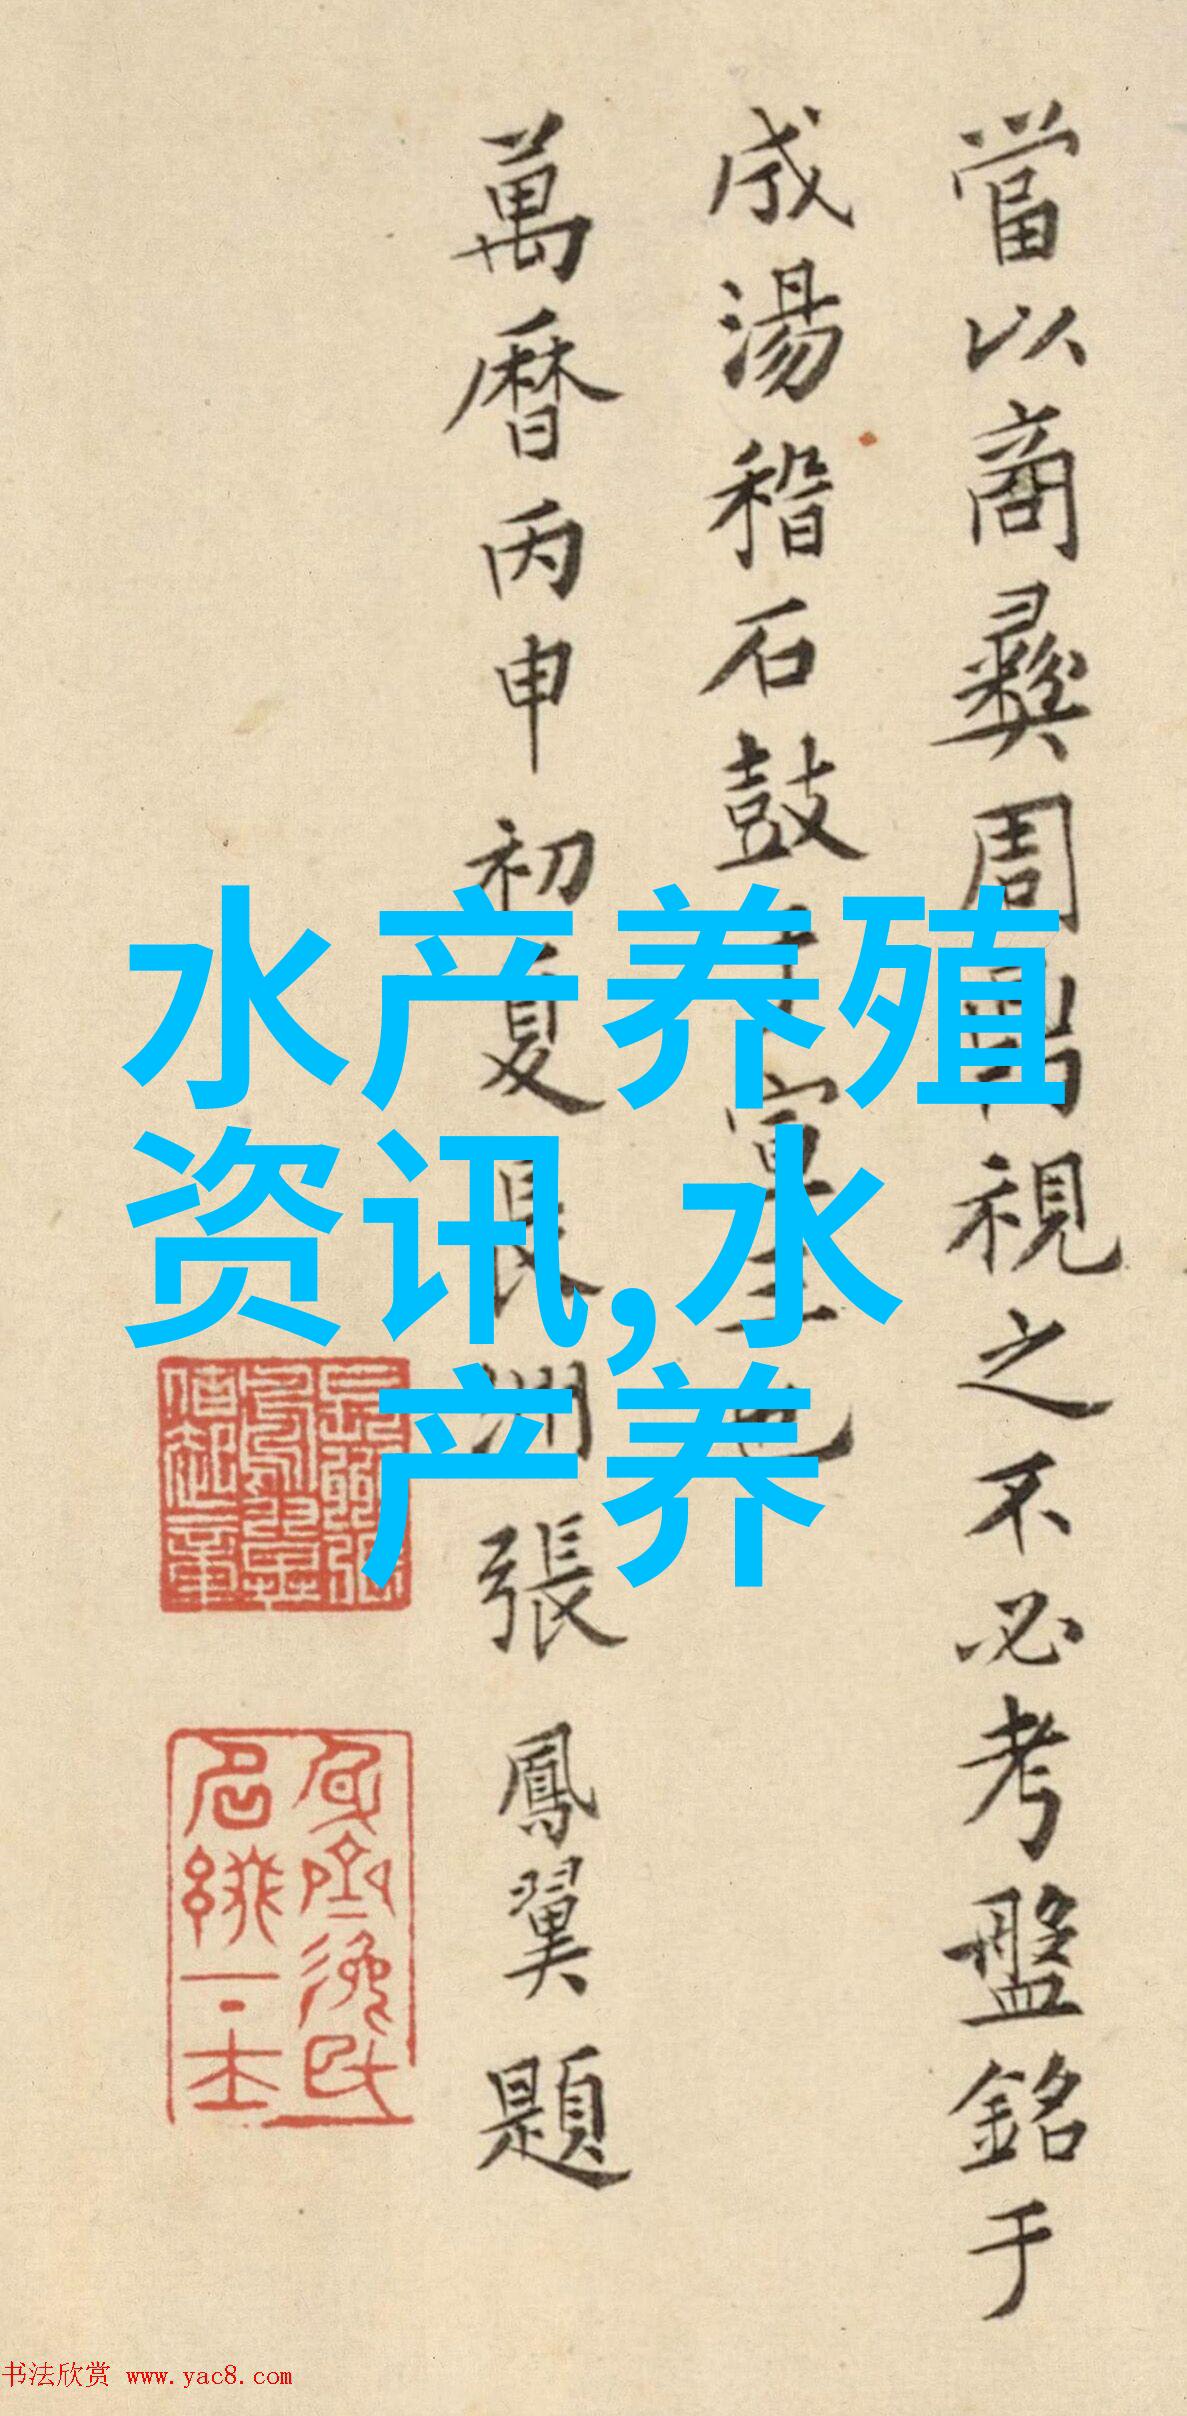 當以商彝周卣視之不必考盤銘于
成湯稽石鼓于宣王也
萬曆丙申初夏長洲張鳳翼題
水产养殖
资讯,水
产养
书法欣赏 www.yac8.com